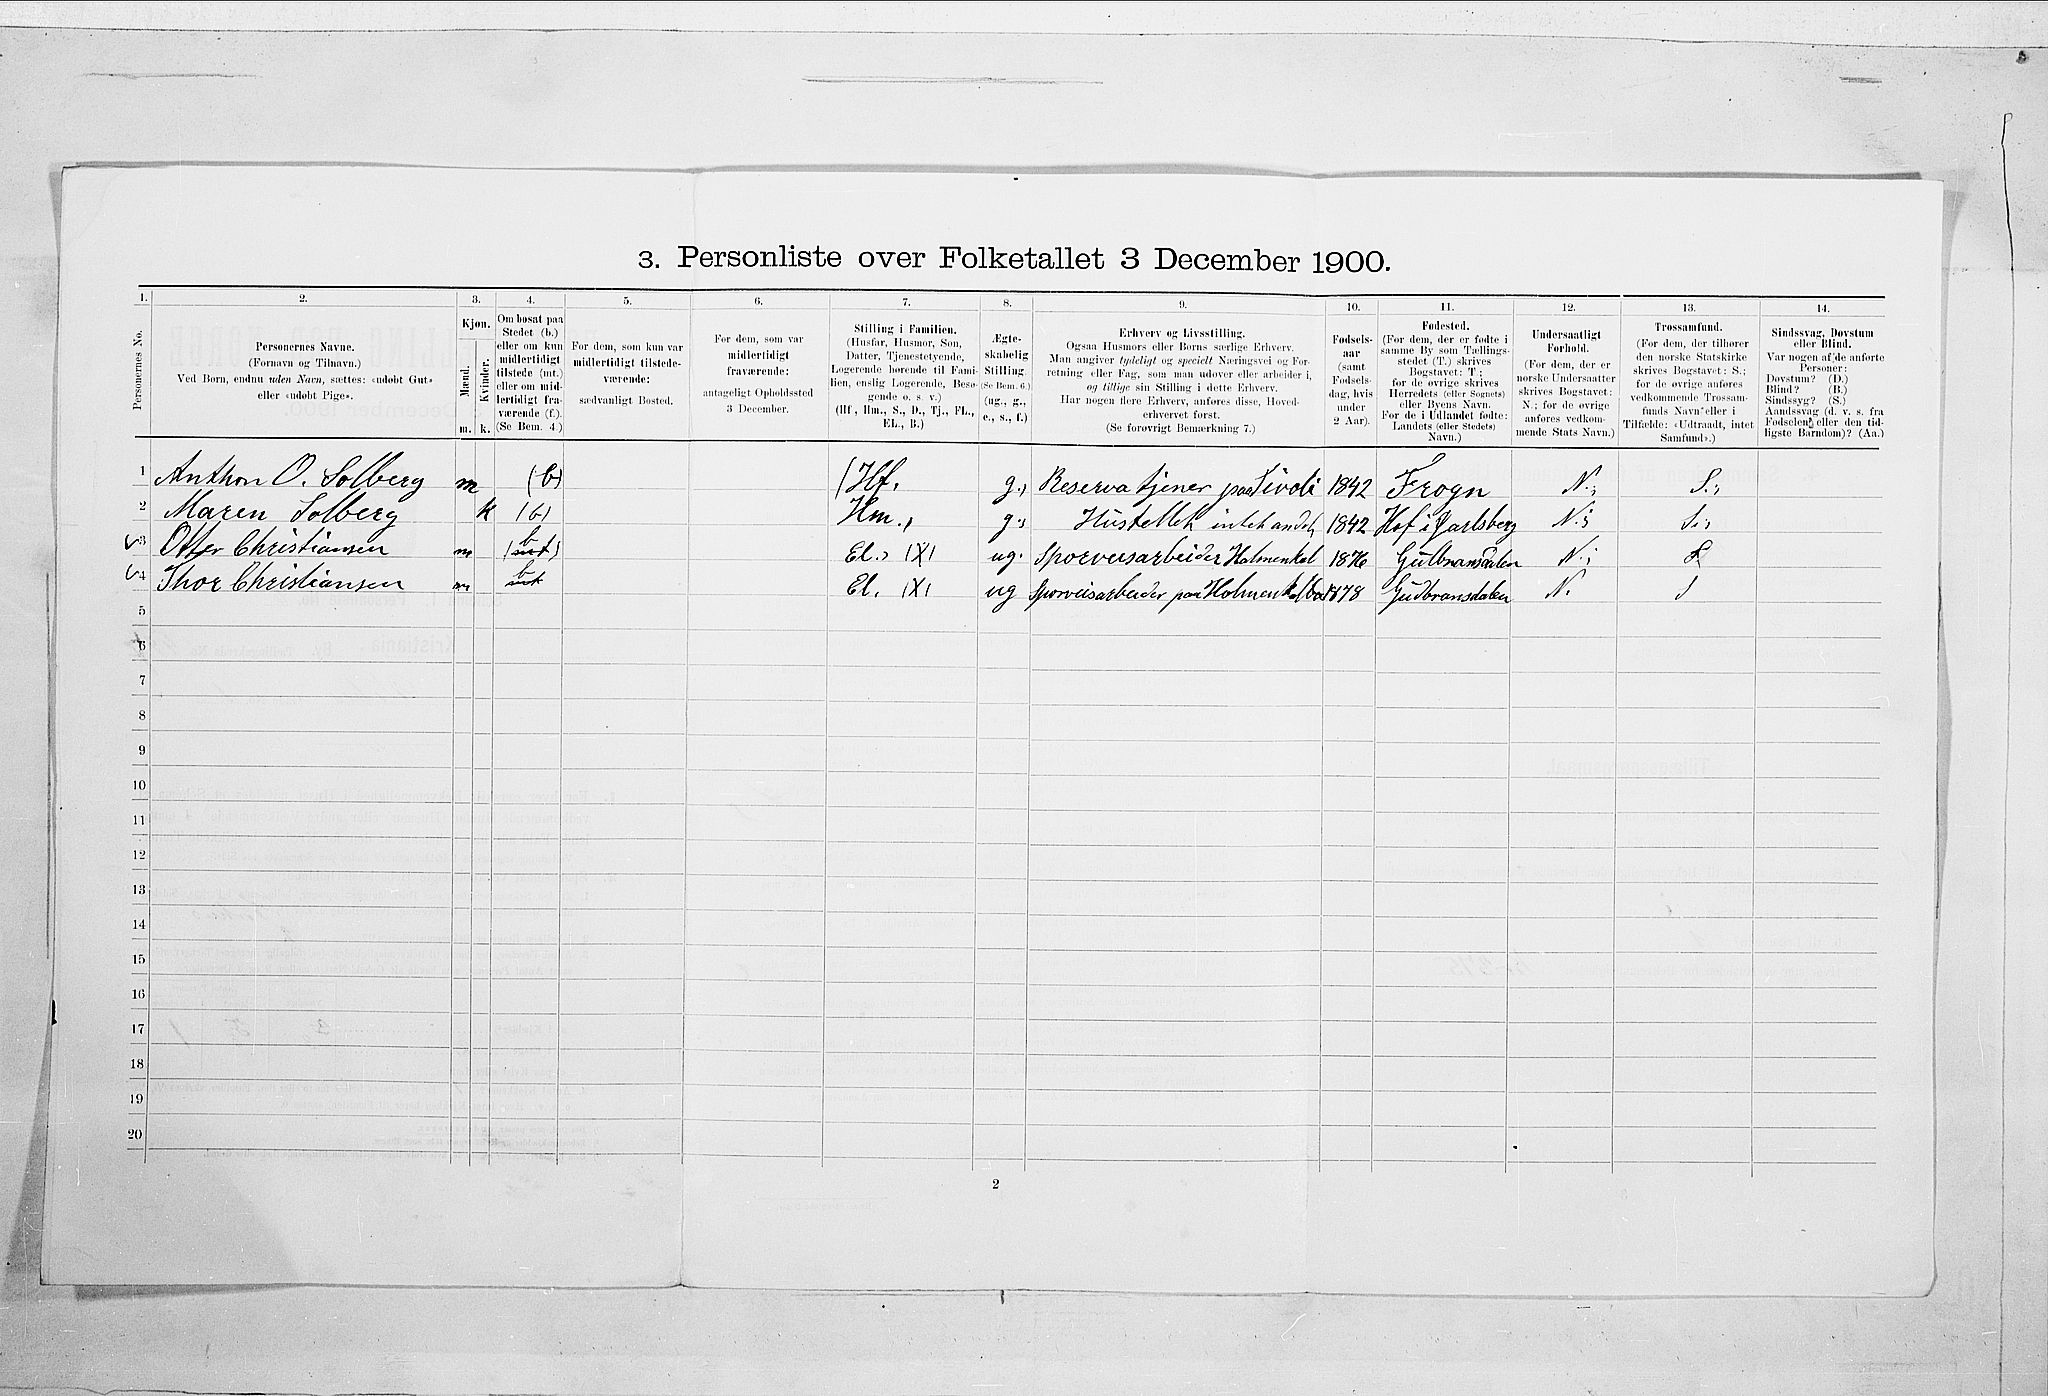 3. Personliste over Folketallet 3 December 1900.
1. 2. 3. 4. 5. 6. 7. 8. 9. 10. 11. 12. 13. 14.
Personernes No.
Personernes Navne.
(Fornavn og Tilnavn.)
Ved Børn, endnu uden Navn, sættes: «udøbt Gut»
eller «udøbt Pige».
Kjøn.
Mænd.
Kvinder.
m. k.
Om bosat paa
Stedet (b.)
eller om kun
midlertidigt
tilstede (mt.)
eller om mid-
lertidigt fra-
værende (f.).
(Se Bem. 4.)
For dem, som kun var
midlertidigt tilstede-
værende:
sædvanligt Bosted.
For dem, som var
midlertidigt
fraværende:
antageligt Opholdssted
3 December.
Stilling i Familien.
(Husfar, Husmor, Søn,
Datter, Tjenestetyende,
Logerende hørende til Fami-
lien, enslig Logerende, Besø-
gende o. s. v.)
(Hf., Hm., S., D., Tj., FL.,
EL., B.)
Ægte-
skabelig
Stilling.
(Se Bem. 6.)
(ug., g.,
e., s., f.)
Erhverv og Livsstilling.
Ogsaa Husmors eller Børns særlige Erhverv.
Man angiver tydeligt og specielt Næringsvei og For-
retning eller Fag, som man udøver eller arbeider i,
og tillige sin Stilling i dette Erhverv.
Har nogen flere Erhverv, anføres disse, Hoved-
erhvervet først.
(Se forøvrigt Bemærkning 7.)
Fødsels-
aar
(samt
Fødsels-
dag, hvis
under
2 Aar).
Fødested.
(For dem, der er fødte i
samme By som Tællings-
stedet (T.) skrives
Bogstavet: T;
for de øvrige skrives
Herredets (eller Sognets)
eller Byens Navn.
For de i Udlandet fødte:
Landets (eller Stedets)
Navn.)
Undersaatligt
Forhold.
(For dem, der er
norske Undersaatter
skrives Bogstavet:
N.; for de øvrige
anføres vedkom-
mende Stats Navn.)
Trossamfund.
(For dem, der tilhører
den norske Statskirke
skrives Bogstavet: S.;
for de øvrige anføres
vedkommende Trossam-
funds Navn eller i
Tilfælde: «Udtraadt, intet
Samfund».)
Sindssvag, Døvstum
eller Blind.
Var nogen af de anførte
Personer:
Døvstum? (D.)
Blind? (B.)
Sindssyg? (S.)
Aandssvag (d. v. s. fra
Fødselen eller den tid-
ligste Barndom)? (Aa.)
1 Anthon O. Solberg m (b) (Hf. g.) Reservatjener paa Tivoli 1842 Frogn N.; S.;
2 Maren Solberg k (b) Hm., g.; Hustellet 1842 Hof i Jarlsberg N.; S.;
3 Otter Christiansen m b (mt) El., (X) ug. Sporveisarbeider Holmenkol 1876 Gulbransdalen N.; S
4 Thor Christiansen m b mt El. (X) ug Sporveisarbeider paa Holmenkolban 1878 Gudbransdalen N. S
5
6
7
8
9
10
11
12
13
14
15
16
17
18
19
20
2